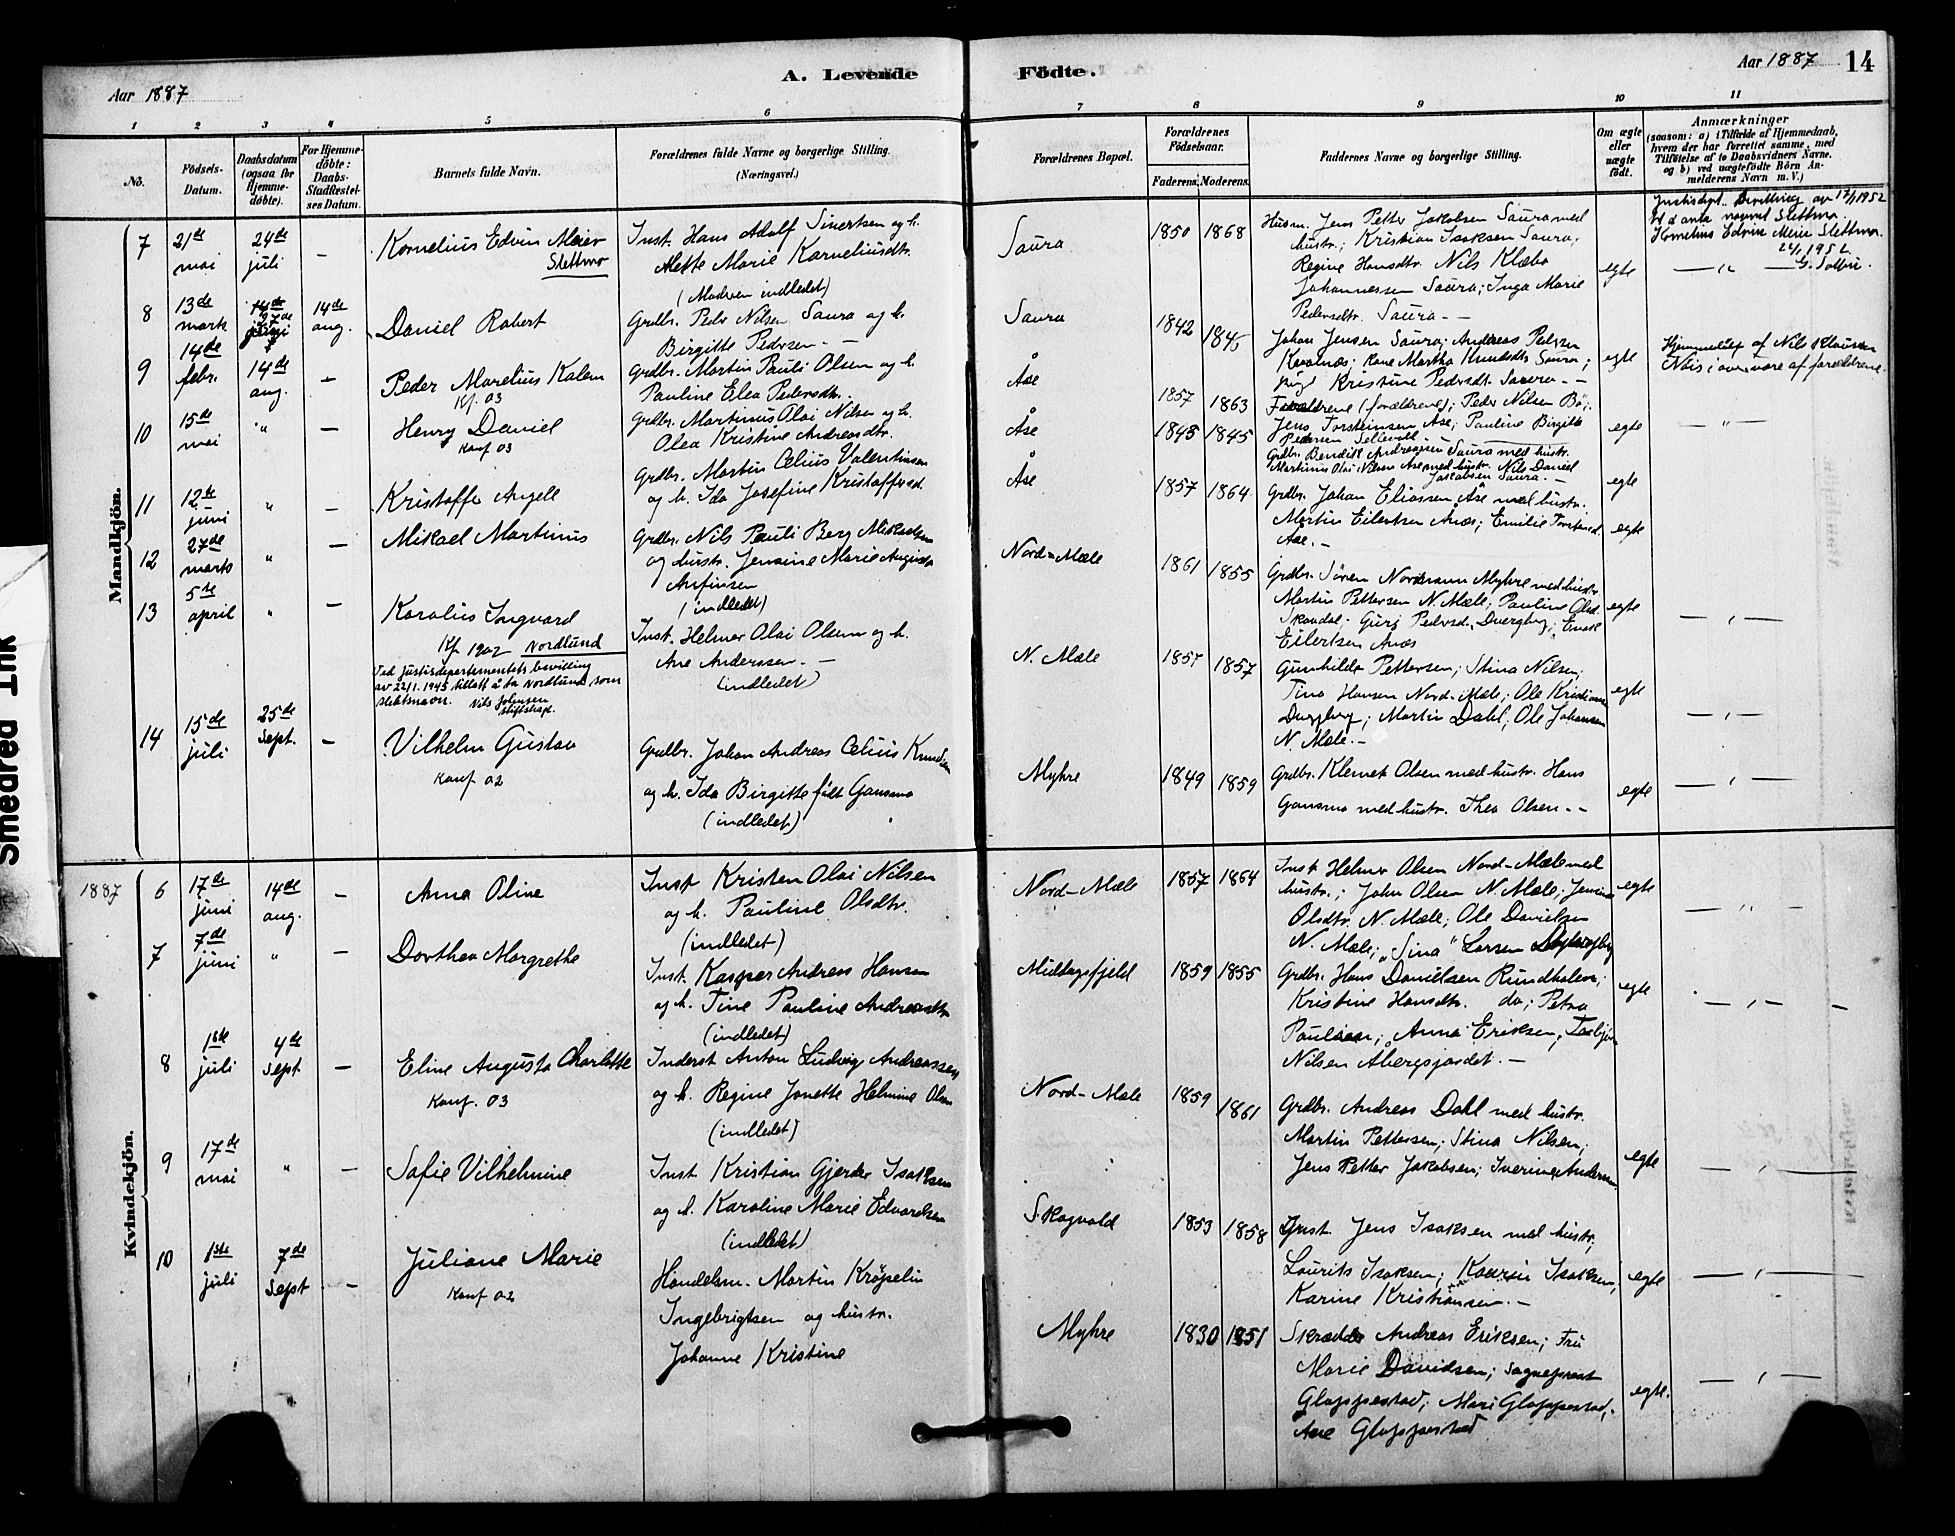 A. Levende Födte.
Aar 1887
Aar 1887 14
1 2 3 4 5 6 7 8 9 10 11
No.
Födsels-Datum.
Daabsdatum (ogsaa for Hjemme-döbte).
For Hjemme-döbte: Daabs-Stadfæstel-ses Datum.
Barnets fulde Navn.
Forældrenes fulde Navne og borgerlige Stilling.
(Næringsvei.)
Forældrenes Bopæl.
Forældrenes Födselsaar.
Faderens. Moderens.
Faddernes Navne og borgerlige Stilling.
Om ægte eller uægte födt.
Anmærkninger
(saasom: a) i Tilfælde af Hjemmedaab,
hvem der har forrettet samme, med
Tilföielse af to Daabsvidners Navne.
og b) ved uægtefödte Börn An-
melderens Navn m. V.)
Mandkjön.
7 21de mai 24de juli –
Kornelius Edvin Meier
Slettmo
Inst. Hans Adolf Sivertsen og h.
Mette Marie Korneliusdtr.
(Moderen indledet)
Saura 1850 1868
Husm. Jens Petter Jakobsen Saura med
hustr.; Kristian Isaksen Saura;
Regine Hansdtr. Nils Klæbo
Johannessen Saura; Inga Marie
Pedersdtr. Saura. –
egte
Justisdept. Bevilling av 17/1 1952
å anta navnet Slettmo.
Kornelius Edvin Meier Slettmo.
22/1 1952
8 13de marts 14de ang.
Daniel Robert
Grdbr. Peder Nilsen Saura og h.
Birgitte Pedersen. –
Saura 1842 1845
Johan Jensen Saura; Andreas Pedersen
Kone Martha Saura;
Kristine Pedersdt. Saura. –
egte
Hjemmedøbt af Nils Klausen
i overvære af forældrene.
9 14de febr. 14de aug. –
Peder Marelius Kalem
Kf. 03
Grdbr. Martin Pauli Olsen og h.
Pauline Elea Pedersdtr.
Åse 1857 1863
Forældrene (forældrene); Peder Nilsen Bö;
Jens Torsteinsen Åse; Pauline Birgitte
Pedersen
egte
– " –
10 15de mai " –
Henry Daniel
Konf 03
Grdbr. Martinus Olai Nilsen og h.
Olea Kristine Andreasdtr.
Åse 1845 1845
Grdbr. Bendik Andreassen Saura med hustr.
Martinus Olai Nilsen Åse med hustr. Nils Daniel
Jakobsen Saura. –
egte
11 12te juni " –
Kristoffer Angell
Grdbr. Martin Celius Valentinsen
og h. Ida Josefine Kristoffersd.
Åse 1857 1864
Grdbr. Johan Eliassen Åse med hustr.
Martin Eilertsen Ånæs; Emilie
Åse. –
egte
12 27de marts " –
Mikael Martinus
Grdbr. Nils Pauli Berg Mikalsen
og hustr. Jensine Marie Augusta
Arntinsen
(indledet)
Nord-Mæle 1861 1855
Grdbr. Sören Nordmann Myhre med hustr.
Martin Pettersen N. Mæle; Pauline Olsd.
Skoudal. Guri Pedersd. Dvergberg; Einar
Eilertsen Anæs
egte
– " –
13 5te april " –
Karolius Ingvard
Kf. 1902 Nordlund
Ved Justisdepartementets bevilling
av 22/1. 1945 tillatt å ta Nordlund som
slektsnavn. Nils Johnsen
stiftskap.
Inst. Helmer Olai Olsen og h.
Ane Anderssen. –
(indledet)
N. Mæle 1857 1857
Gunhilda Pettersen; Stina Nilsen;
Tina Hansen Nord-Mæle; Ole Kristiansen
Dvergberg; Martin Dahl; Ole Johansen
N. Mæle. –
egte
– " –
14 15de juli 25de sept. –
Vilhelm Gustav
Konf 02
Grdbr. Johan Andreas Celius Knudsen
og h. Ida Birgitte født Gansmo
(indledet)
Myhre 1849 1859
Grdbr. Klemet Olsen med hustr. Hans
Gansmo med hustr. Thea Olsen. –
egte
– " –
Kvindekjön.
1887 6 17de juni 14de aug. –
Anna Oline
Inst Kristen Olai Nilsen
og h. Pauline Olsdtr.
(indledet)
Nord-Mæle 1857 1864
Inst Helmer Olsen Nord-Mæle med
hustr.; John Olsen N. Mæle; Jensine
Olsdtr. N. Mæle; Ole Danielsen
N. Mæle; "Sina" Larsen
egte
– " –
7 7de juni " –
Dorthea Margrethe
Inst. Kasper Andreas Hansen
og h. Tine Pauline Andreasdtr
(indledet)
Middagsfjeld 1859 1855
Grdbr. Hans Danielsen Rundholen;
Kristine Hansdtr. do; Petra
Paulsen; Anna Eriksen; Torbjør
Nilsen Åbergsjordet. –
egte
– " –
8 1ste juli 4de sept –
Eline Augusta Charlotte
Konf. 03
Inderst Anton Ludvig Andreassen
og h. Regine Jonette Helmine Olsen
(indledet)
Nord-Mæle 1859 1861
Grdbr. Andreas Dahl med hustr.
Martin Pettersen; Stina Nilsen;
Jens Petter Jakobsen; Iverine Andersen
egte
– " –
9 17de mai " –
Sofie Vilhelmine
Inst Kristian Gjerder Isaksen
og h. Karoline Marie Edvardsen
(indledet)
Skogvold 1853 1858
Inst. Jens Isaksen med hustr.;
Laurits Isaksen; Kaarin Isaksen;
Karine Kristiansen. –
egte
– " –
10 1ste juli 7de Sept –
Juliane Marie
Konf 02
Handelsm. Martin Kröpelin
Ingebrigtsen og hustr.
Johanne Kristine
Myhre 1830 1851
Skrædder Andreas Eriksen; Fru
Marie Davidsen; Sogneprest
Gloppestad; Mari Gloppestad;
Ane Gloppestad
egte.
– " –
Smedred Ink